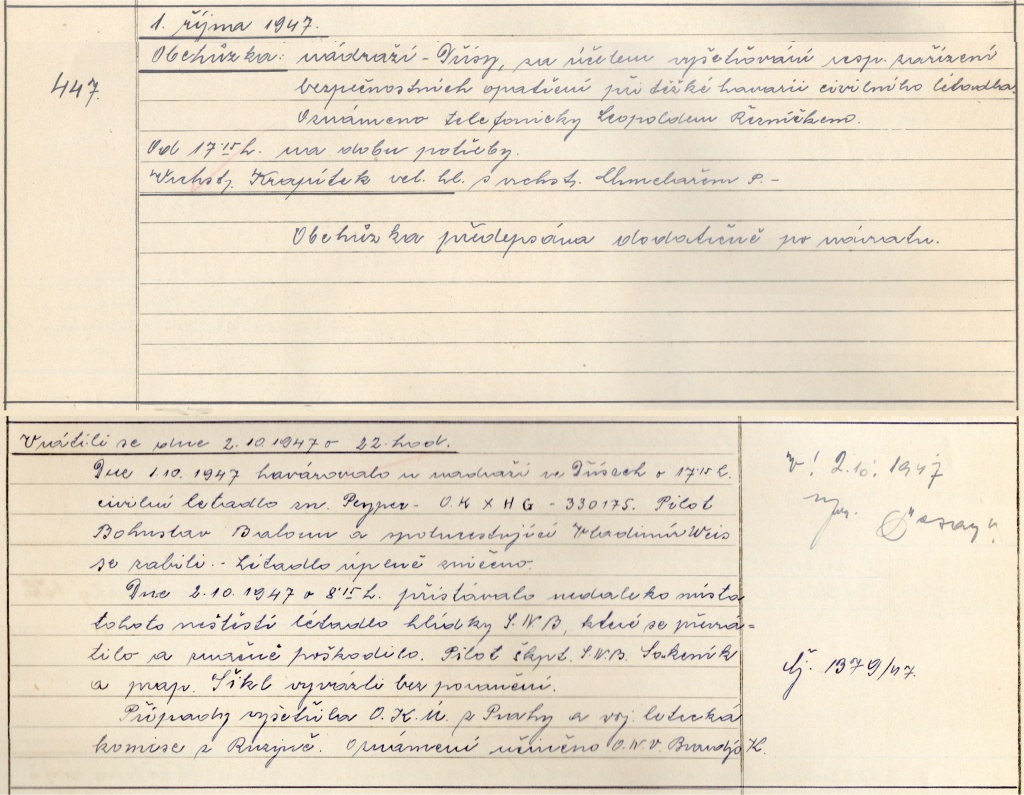 447.
1. října 1947.
Obchůzka: nádraží - Dřísy, za účelem vyšetřování resp. zařízení
bezpečnostních opatření při těžké havarii civilního létadla.
Oznámeno telefonicky Leopoldem Řezníčkem.
Od 17 15 h. na dobu potřeby.
Vrchstr. Krapítek vel. hl. s vrchstr. Chmelařem P. -
Obchůzka předepsána dodatečně po návratu.
Vrátili se dne 2.10.1947 o 22. hod.
Dne 1.10. 1947 havarovalo u nadraží ve Dřísech o 17 15 h.
civilní letadlo zn. Peyper - O.K X H G - 330175. Pilot
Bohuslav a spolucestující Vladimír Weis
se zabili. - Letadlo úplně zničeno.
Dne 2.10. 1947 o 8 15 h. přistávalo nedaleko místa
tohoto neštěstí létadlo hlídky S.N.B, které se převrá=
tilo a značně poškodilo. Pilot škpt. S.N.B.
a prap. Šikl vyvázli bez poranění.
Případy vyšetřila O.K.Ú. z Prahy a voj. letecká
komise z Ruzyně. Oznámení učiněno O.N.V. Brandýs
V! 2.10. 1947
Čj. 1379/47.